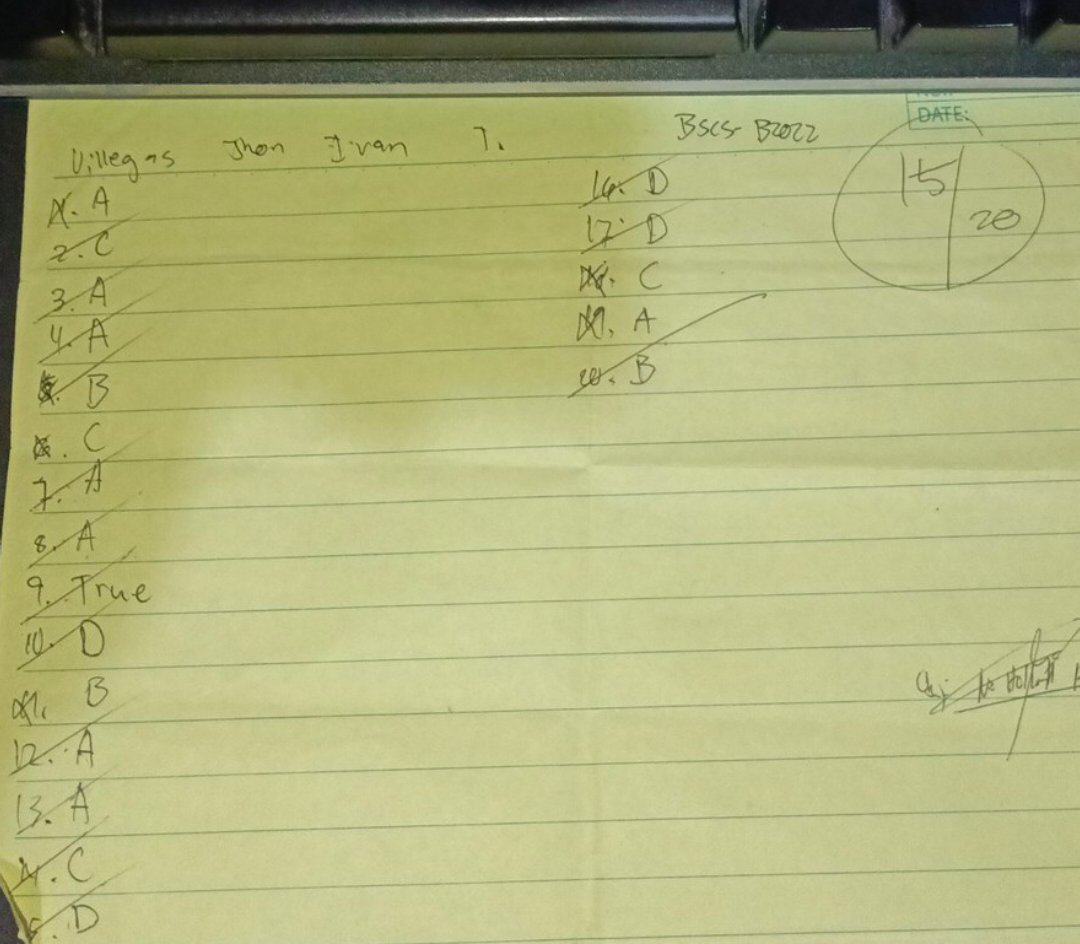 DATE:
Villegas Jhon Ivan T.
BSCS B2022
15
20
1. A
2. C
3. A
4. A
5. B
6. C
7. A
8. A
9. True
10. D
11. B
12. A
13. A
14. C
15. D
16. D
17. D
18. C
19. A
20. B